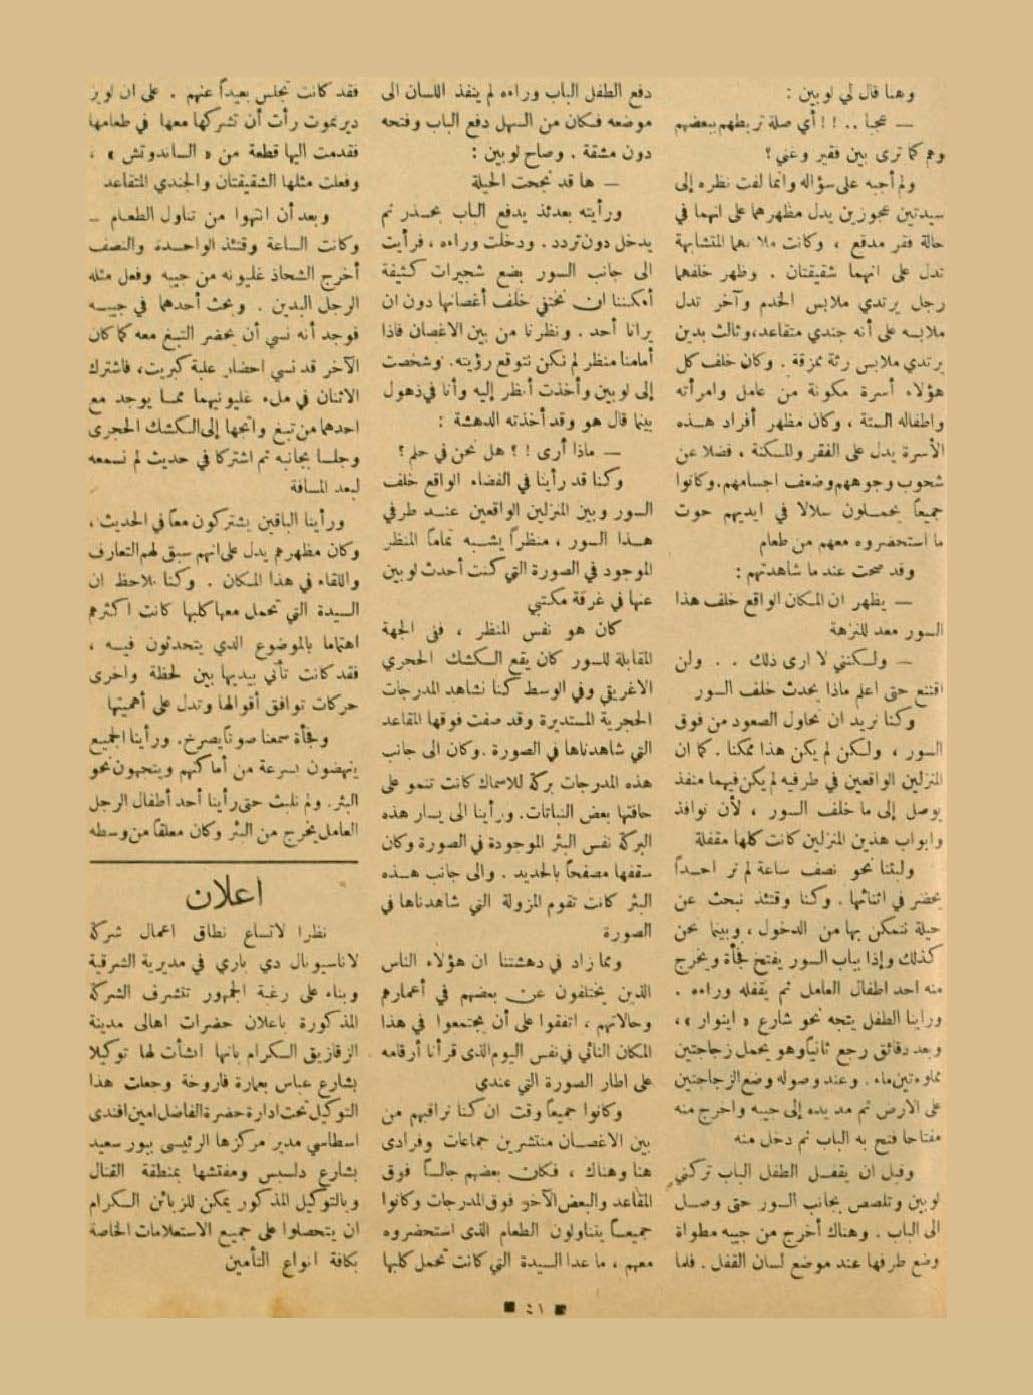 وهنا قال لي لوبين :
— عجبا . . ! ! أي صلة تربطهم ببعضهم
وهم كما ترى بين فقير وغني ؟
ولم أجبه على سؤاله وانما لفت نظره إلى
سيدتين عجوزين يدل مظهرهما على انهما في
حالة فقر مدقع ، وكانت ملابسهما المتشابهة
تدل على انهما شقيقتان . وظهر خلفهما
رجل يرتدي ملابس الخدم وآخر تدل
ملابسه على أنه جندي متقاعد، وثالث بدين
يرتدي ملابس رثة ممزقة . وكان خلف كل
هؤلاء أسرة مكونة من عامل وامرأته
واطفاله الستة ، وكان مظهر أفراد هـذه
الأسرة يدل على الفقر والمسكنة ، فضلا عن
شحوب وجوههم وضعف اجسامهم. وكانوا
جميعاً يحملون سلالا في ايديهم حوت
ما استحضروه معهم من طعام
وقد صحت عند ما شاهدتهم :
— يظهر ان المكان الواقع خلف هذا
السور معد للنزهة
— ولكنني لا ارى ذلك . . ولن
اقتنع حتى اعلم ماذا يحدث خلف السور
وكنا نريد ان نحاول الصعود من فوق
السور ، ولكن لم يكن هذا ممكنا . كما ان
المنزلين الواقعين في طرفيه لم يكن فيهما منفذ
يوصل إلى ما خلف السور ، لأن نوافذ
وابواب هذين المنزلين كانت كلها مقفلة
ولبثنا نحو نصف ساعة لم نر احـداً
يحضر في اثنائها . وكنا وقتئذ نبحث عن
حيلة نتمكن بها من الدخول ، وبينما نحن
كذلك وإذا بباب السور يفتح فجأة ويخرج
منه احد اطفال العامل ثم يقفله وراءه .
وراينا الطفل يتجه نحو شارع « اينوار »،
وبعد دقائق رجع ثانياً وهو يحمل زجاجتين
مملوءتين ماء . وعند وصوله وضع الزجاجتين
على الارض ثم مد يده إلى جيبه واخرج منه
مفتاحا فتح به الباب ثم دخل منه
وقبل ان يقفـل الطفل الباب تركني
لوبين وتلصص بجانب السور حتى وصـل
الى الباب . وهناك أخرج من جيبه مطواة
وضع طرفها عند موضع لسان القفل . فلما
دفع الطفل الباب وراءه لم ينفذ اللسان الى
موضعه فكان من السهل دفع الباب وفتحه
دون مشقة . وصاح لوبين :
— ها قد نجحت الحيلة
ورأيته بعدئذ يدفع الباب بحـذر ثم
يدخل دون تردد . ودخلت وراءه ، فرأيت
الى جانب السور بضع شجيرات كثيفة
أمكننا ان نختفي خلف أغصانها دون ان
يرانا أحد . ونظرنا من بين الاغصان فاذا
أمامنا منظر لم نكن نتوقع رؤيته. وشخصت
إلى لوبين وأخذت أنظر إليه وأنا في ذهول
بينما قال هو وقد أخذته الدهشة :
— ماذا أرى ! ؟ هل نحن في حلم ؟
وكنا قد رأينا في الفضاء الواقع خلف
السور وبين المنزلين الواقعين عنـد طرفي
هـذا السور ، منظراً يشـبه تماماً المنظر
الموجود في الصورة التي كنت أحدث لوبين
عنها في غرفة مكتبي
كان هو نفس المنظر ، ففي الجهة
المقابلة للسور كان يقع الكشك الحجري
الاغريقي وفي الوسط كنا نشاهد المدرجات
الحجرية المستديرة وقد صفت فوقها المقاعد
التي شاهدناها في الصورة . وكان الى جانب
هذه المدرجات بركة للاسماك كانت تنمو على
حافتها بعض النباتات. ورأينا الى يسار هذه
البركة نفس البئر الموجودة في الصورة وكان
سقفها مصفحاً بالحديد . والى جانب هـذه
البئر كانت تقوم المزولة التي شاهدناها في
الصورة
ومما زاد في دهشتنا ان هؤلاء الناس
الذين يختلفون عن بعضهم في أعمارهم
وحالاتهم ، اتفقوا على أن يجتمعوا في هذا
المكان النائي في نفس اليوم الذى قرأنا أرقامه
على اطار الصورة التي عندي
وكانوا جميعاً وقت ان كنا نراقبهم من
بين الاغصان منتشرين جماعات وفرادى
هنا وهناك ، فكان بعضهم جالساً فوق
المقاعد والبعض الآخر فوق المدرجات وكانوا
جميعـاً يتناولون الطعام الذى استحضروه
معهم ، ما عدا السيدة التي كانت تحمل كلبها
فقد كانت تجلس بعيداً عنهم . على ان لويز
ديرنموت رأت أن تشركها معها في طعامها
فقدمت اليها قطعة من « الساندوتش » ،
وفعلت مثلها الشقيقتان والجندي المتقاعد
وبعد أن انتهوا من تناول الطعـام —
وكانت الساعة وقتئذ الواحـدة والنصف
أخرج الشحاذ غليونه من جيبه وفعل مثله
الرجل البدين . وبحث أحدهما في جيبـه
فوجد أنه نسي أن يحضر التبغ معه كما كان
الآخر قد نسي احضار علبة كبريت، فاشترك
الاثنان في ملء غليونيهما ممـا يوجد مع
احدهما من تبغ واتجها إلى الكشك الحجرى
وجلسا بجانبه ثم اشتركا في حديث لم نسمعه
لبعد المسافة
ورأينا الباقين يشتركون معاً في الحديث،
وكان مظهرهم يدل على انهم سبق لهم التعارف
واللقاء في هذا المكان . وكنا نلاحظ ان
السيدة التي تحمل معها كلبها كانت اكثرهم
اهتماما بالموضوع الذي يتحدثون فيـه ،
فقد كانت تأتي بيديها بين لحظة واخرى
حركات توافق أقوالها وتدل على أهميتها
وفجأة سمعنا صوتاً يصرخ. ورأينا الجميع
ينهضون بسرعة من أماكنهم ويتجهون نحو
البئر. ولم نلبث حتى رأينا أحد أطفال الرجل
العامل يخرج من البئر وكان معلقاً من وسطه
اعلان
نظرا لاتساع نطاق اعمال شركة
لاناسيونال دي باري في مديرية الشرقية
وبناء على رغبة الجمهور تتشرف الشركة
المذكورة باعلان حضرات اهالى مدينة
الزقازيق الكرام بانها انشأت لها توكيلا
بشارع عباس بعمارة فاروخة وجعلت هذا
التوكيل تحت ادارة حضرة الفاضل امين افندى
اسطاسي مدير مركزها الرئيسى ببور سعيد
بشارع دلسبس ومفتشها بمنطقة القنال
وبالتوكيل المذكور يمكن للزبائن الكرام
ان يتحصلوا على جميع الاستعلامات الخاصة
بكافة انواع التأمين
■ ٤١ ■